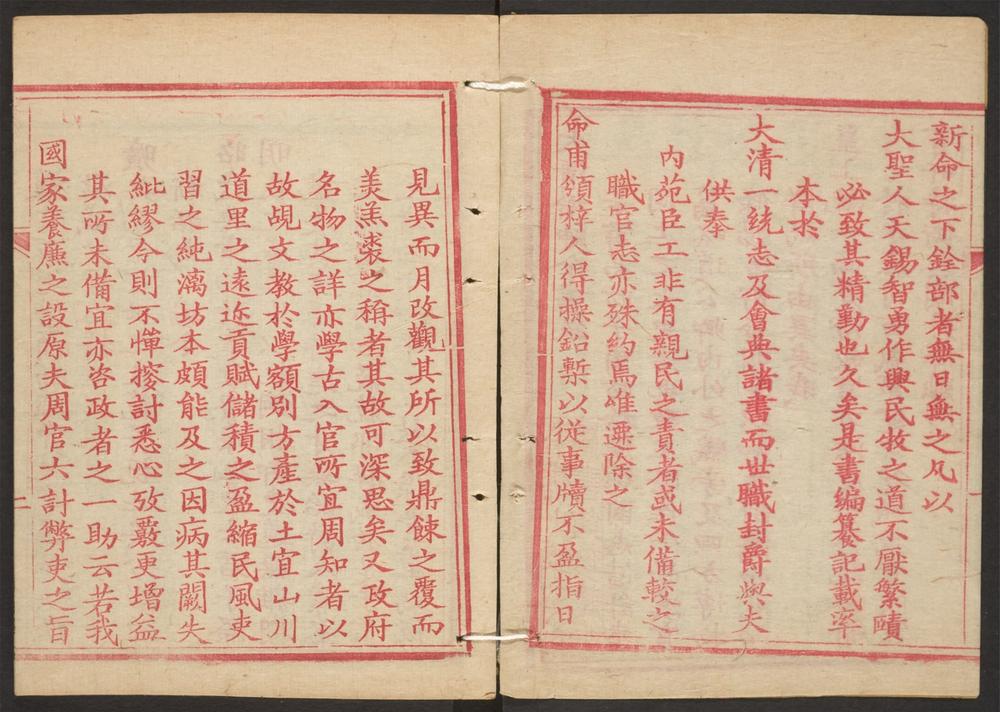 新命之下銓部者無日無之凡以
大聖人天錫智勇作興民牧之道不厭繁賾
必致其精勤也久矣是書編纂記載率
本於
大清一统志及會典諸書而世職封爵與夫
供奉
內苑臣工非有親民之責者或未備較之
職官志亦殊約焉唯遷除之
命甫頒梓人得操鉛槧以從事牘不盈指日
見異而月改觀其所以致鼎餗之覆而
羙羔裘之稱者其故可深思矣又政府
名物之詳亦學古入官所宜周知者以
故覘文教於學額別方產於土宜山川
道里之遠近貢賦儲積之盈縮民風吏
習之純漓坊本頗能及之因病其闕失
紕繆今則不憚搜討悉心攷覈更增益
其所未備宜亦咨政者之一助云若我
國家養廉之設原夫周官六計弊吏之旨